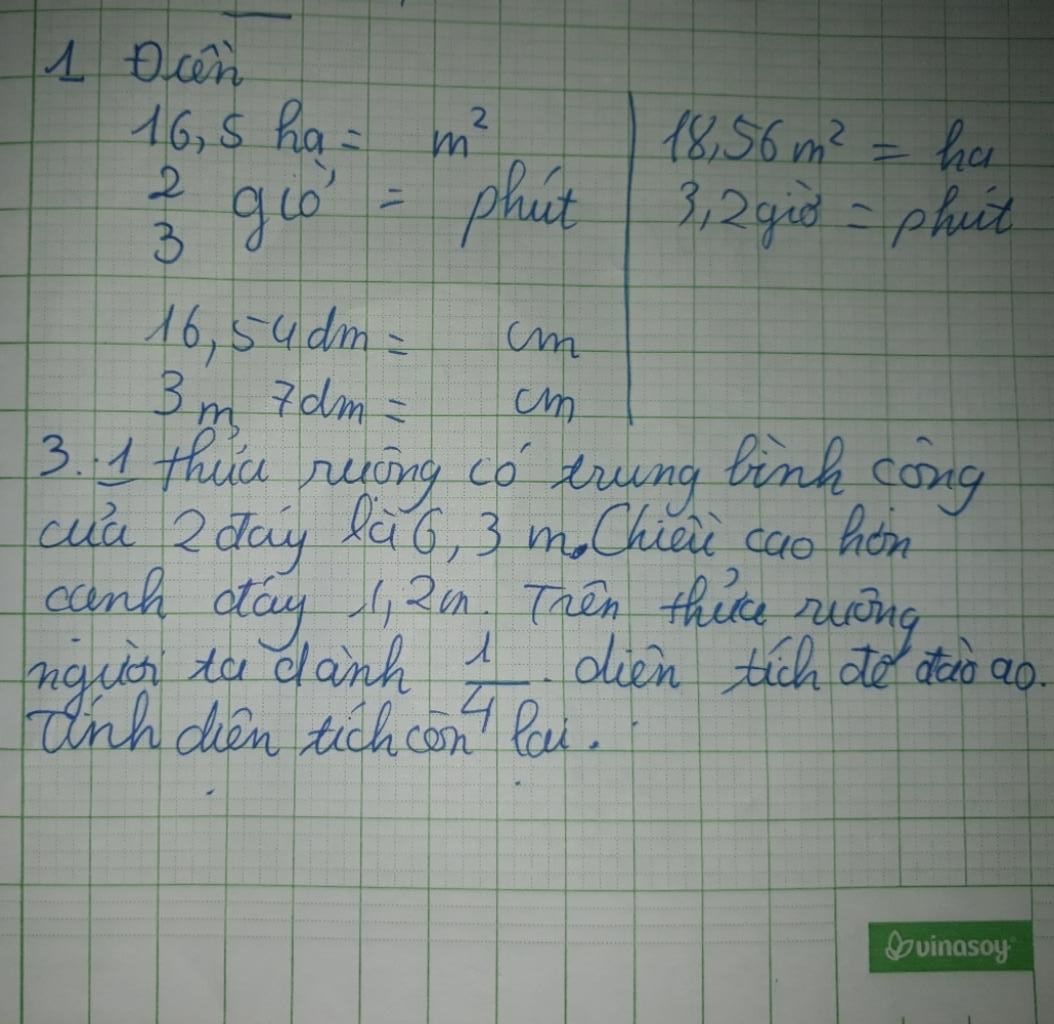 1 Điền
16,5 ha = m²
2/3 giờ = phút
16,54 dm = cm
3 m 7 dm = cm
18,56 m² = ha
3,2 giờ = phút
3. 1 thửa ruộng có trung bình cộng
của 2 đáy là 6,3 m. Chiều cao hơn
cạnh đáy 1,2m. Trên thửa ruộng
người ta dành 1/4 diện tích để đào ao.
Tính diện tích còn lại.
vinasoy